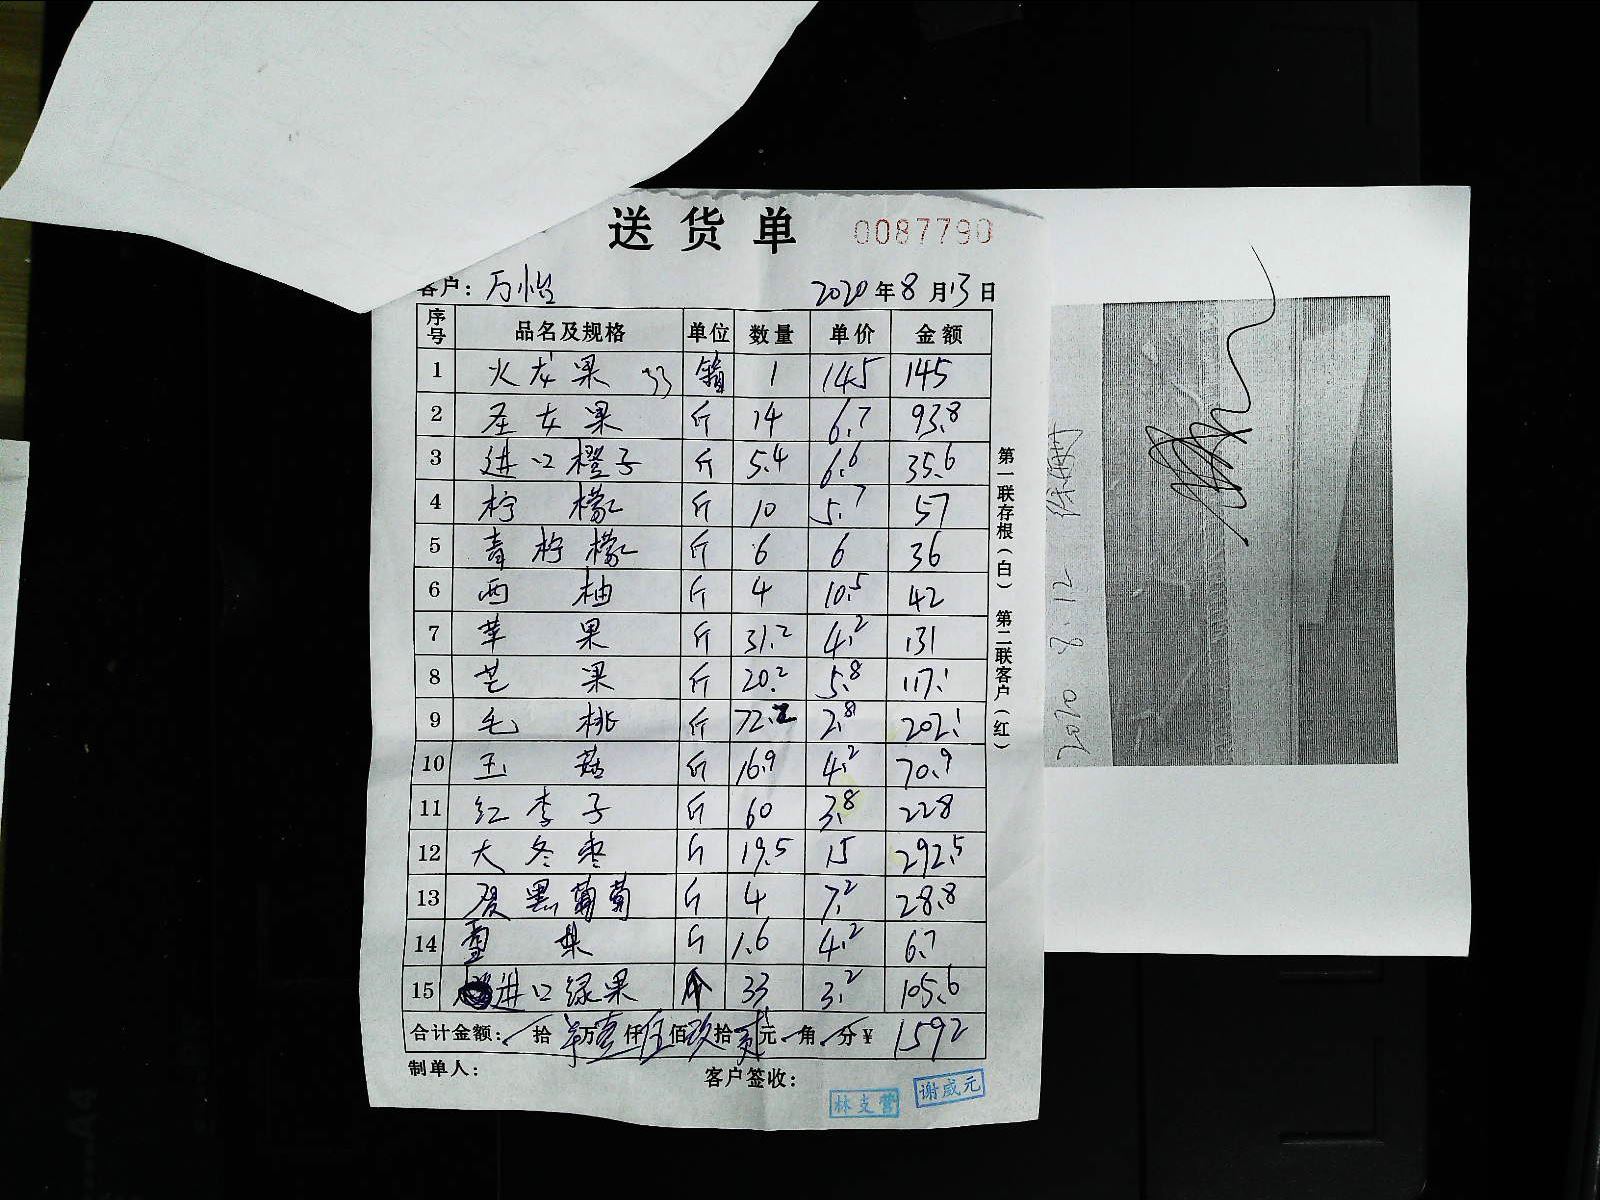 送货单 0087790
客户: 万怡 2020年8月13日
序号 品名及规格 单位 数量 单价 金额
1 火龙果 33 箱 1 145 145
2 圣女果 斤 14 6.7 93.8
3 进口橙子 斤 5.4 6.6 35.6
4 柠檬 斤 10 5.7 57
5 青柠檬 斤 6 6 36
6 西柚 斤 4 10.5 42
7 苹果 斤 31.2 4.2 131
8 芒果 斤 20.2 5.8 117.1
9 毛桃 斤 72.2 2.8 202.1
10 玉菇 斤 16.9 4.2 70.9
11 红李子 斤 60 3.8 228
12 大冬枣 斤 19.5 15 292.5
13 夏黑葡萄 斤 4 7.2 28.8
14 雪梨 斤 1.6 4.2 6.7
15 进口绿果 个 33 3.2 105.6
合计金额: 拾 万壹仟伍佰玖拾贰元 角 分 ¥ 1592
制单人: 客户签收:
林支营 谢咸元
第一联存根(白) 第二联客户(红)
2020 8.12